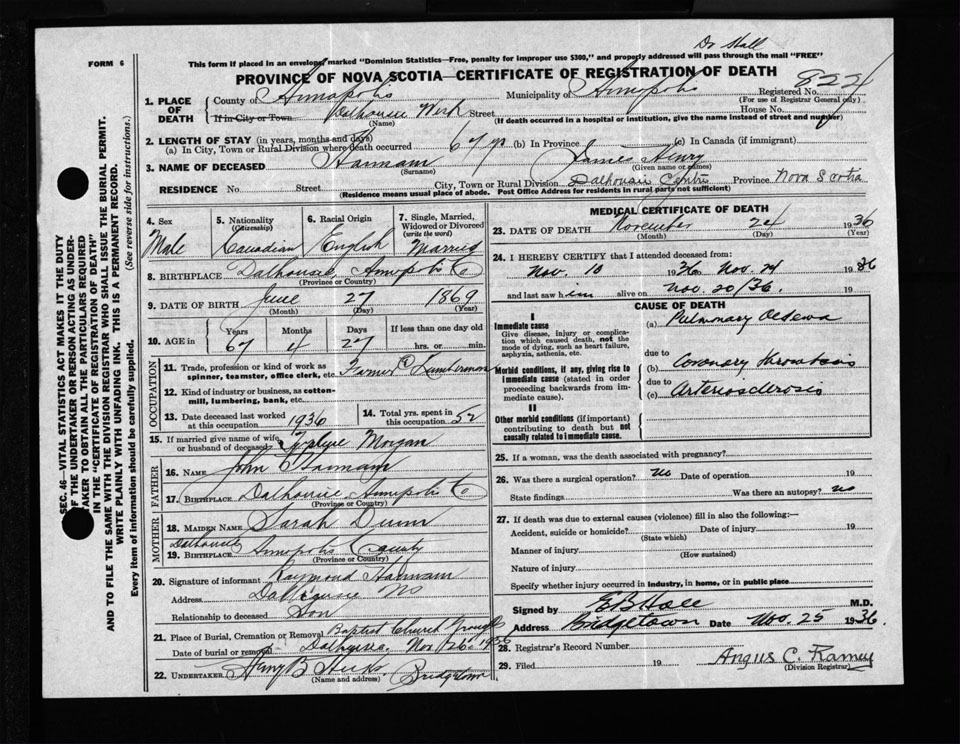 Dr Hall
FORM 6
This form if placed in an envelope marked "Dominion Statistics—Free, penalty for improper use $300," and properly addressed will pass through the mail "FREE"
PROVINCE OF NOVA SCOTIA—CERTIFICATE OF REGISTRATION OF DEATH
8221
1. PLACE OF DEATH
County of Annapolis Municipality of Annapolis Registered No.
(For use of Registrar General only)
If in City or Town Dalhousie West Street House No.
(Name) (If death occurred in a hospital or institution, give the name instead of street and number)
2. LENGTH OF STAY (in years, months and days)
(a) In City, Town or Rural Division where death occurred 67 yr (b) In Province (c) In Canada (if immigrant)
3. NAME OF DECEASED Hannam James Henry
(Surname) (Given name or names)
RESIDENCE No. Street City, Town or Rural Division Dalhousie Centre Province Nova Scotia
(Residence means usual place of abode. Post Office Address for residents in rural parts not sufficient)
4. Sex Male
5. Nationality (Citizenship) Canadian
6. Racial Origin English
7. Single, Married, Widowed or Divorced (write the word) Married
8. BIRTHPLACE Dalhousie, Annapolis Co
(Province or Country)
9. DATE OF BIRTH June 27 1869
(Month) (Day) (Year)
10. AGE in Years Months Days If less than one day old
67 4 27 hrs. or min.
OCCUPATION
11. Trade, profession or kind of work as spinner, teamster, office clerk, etc. Farmer & Lumberman
12. Kind of industry or business, as cotton-mill, lumbering, bank, etc.
13. Date deceased last worked at this occupation 1936
14. Total yrs. spent in this occupation 52
15. If married give name of wife or husband of deceased Morgan
FATHER
16. NAME John Hannam
17. BIRTHPLACE Dalhousie Annapolis Co
(Province or Country)
MOTHER
18. MAIDEN NAME Sarah Dunn
Dalhousie
19. BIRTHPLACE Annapolis County
(Province or Country)
20. Signature of informant Raymond Hannam
Address Dalhousie NS
Relationship to deceased Son
21. Place of Burial, Cremation or Removal Baptist Church
Date of burial or removal Dalhousie, Nov 26th 1936
22. UNDERTAKER Harry B Hicks Bridgetown
(Name and address)
MEDICAL CERTIFICATE OF DEATH
23. DATE OF DEATH November 24 1936
(Month) (Day) (Year)
24. I HEREBY CERTIFY that I attended deceased from:
Nov. 10 1936 to Nov. 24 1936
and last saw him alive on Nov. 20/36. 19
CAUSE OF DEATH
I
Immediate cause
Give disease, injury or complication which caused death, not the mode of dying, such as heart failure, asphyxia, asthenia, etc.
(a) Pulmonary Oedema
due to
Morbid conditions, if any, giving rise to immediate cause (stated in order proceeding backwards from immediate cause).
(b) Coronary thrombosis
due to
(c) Arteriosclerosis
II
Other morbid conditions (if important) contributing to death but not causally related to immediate cause.
25. If a woman, was the death associated with pregnancy?
26. Was there a surgical operation? no Date of operation 19
State findings Was there an autopsy? no
27. If death was due to external causes (violence) fill in also the following:—
Accident, suicide or homicide? Date of injury 19
(State which)
Manner of injury
(How sustained)
Nature of injury
Specify whether injury occurred in industry, in home, or in public place
Signed by E B Hall M.D.
Address Bridgetown Date Nov. 25 1936
28. Registrar's Record Number
29. Filed 19 Angus C. Ramey
(Division Registrar)
SEC. 46—VITAL STATISTICS ACT MAKES IT THE DUTY
OF THE UNDERTAKER OR PERSON ACTING AS UNDER-
TAKER TO OBTAIN ALL THE PARTICULARS REQUIRED
IN THE "CERTIFICATE OF REGISTRATION OF DEATH"
AND TO FILE THE SAME WITH THE DIVISION REGISTRAR WHO SHALL ISSUE THE BURIAL PERMIT.
WRITE PLAINLY WITH UNFADING INK. THIS IS A PERMANENT RECORD.
Every item of information should be carefully supplied. (See reverse side for instructions.)